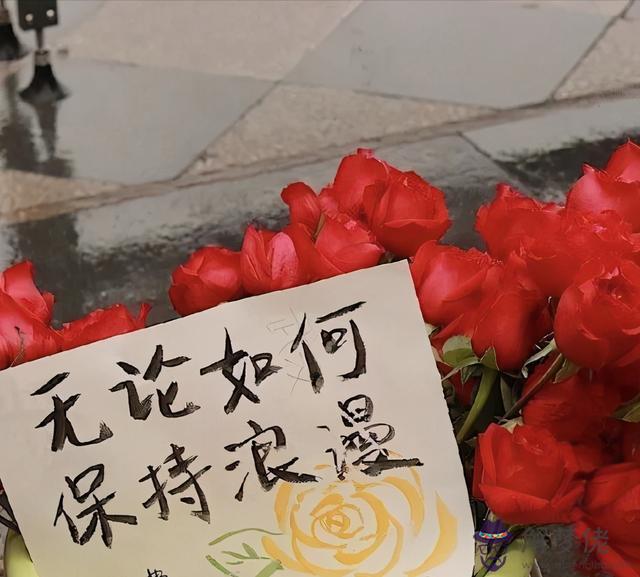 无论如何
保持浪漫